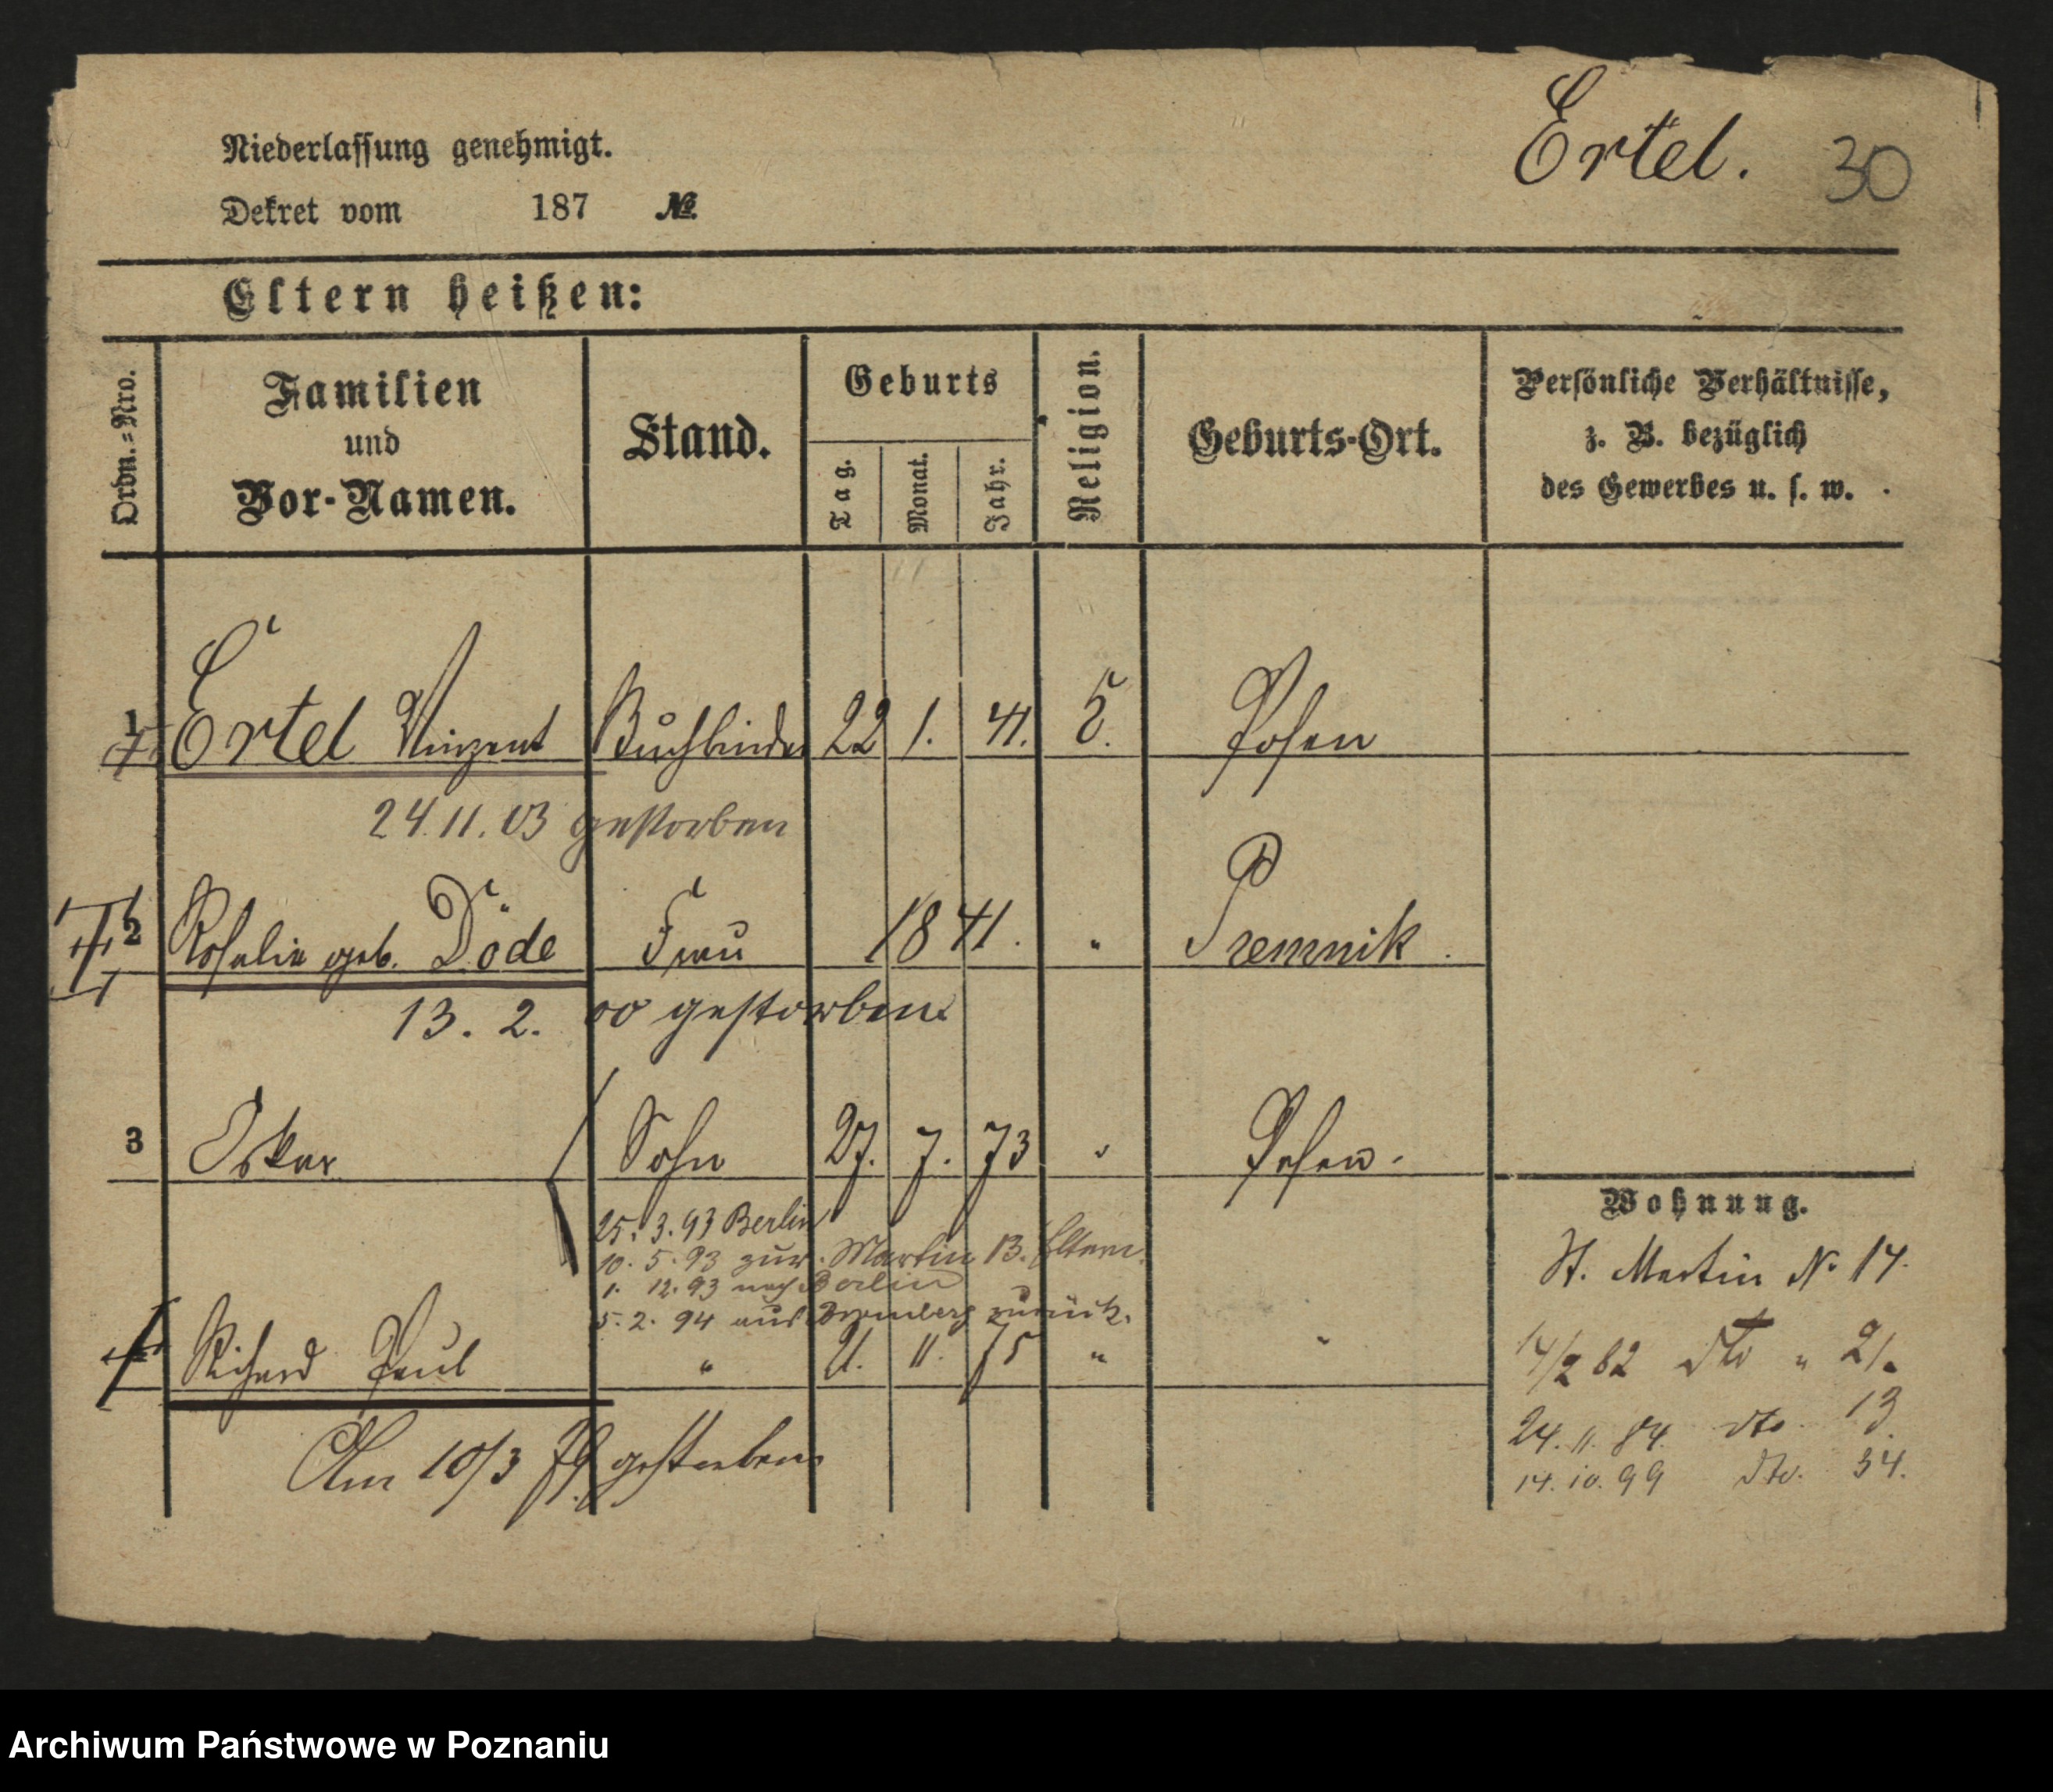 Ertel. 30
Niederlassung genehmigt.
Dekret vom 187 №
Eltern heißen:
Ordn.=Nro.
Familien
und
Vor-Namen.
Stand.
Geburts
Tag.
Monat.
Jahr.
Religion.
Geburts-Ort.
Persönliche Verhältnisse,
z. B. bezüglich
des Gewerbes u. s. w.
1 Ertel Vinzent Buchbinder 22 1. 41. Posen
24.11.03 gestorben
2 Rosalie geb. Döde Frau 1841. " Premnik.
13. 2. 00 gestorben.
3 Oskar Sohn 27. 7. 73 " Posen.
25. 3. 93 Berlin
10. 5. 93 zur. Martin 13. Eltern.
1. 12. 93 nach Berlin
5. 2. 94 aus Bromberg zurück.
Richard Paul " 11. 75 " "
Am 10/3 79 gestorben
Wohnung.
St. Martin № 14.
14/2 82 dto " 21.
24. 11. 84. dto. 13.
14. 10. 99 dto. 34.
Archiwum Państwowe w Poznaniu